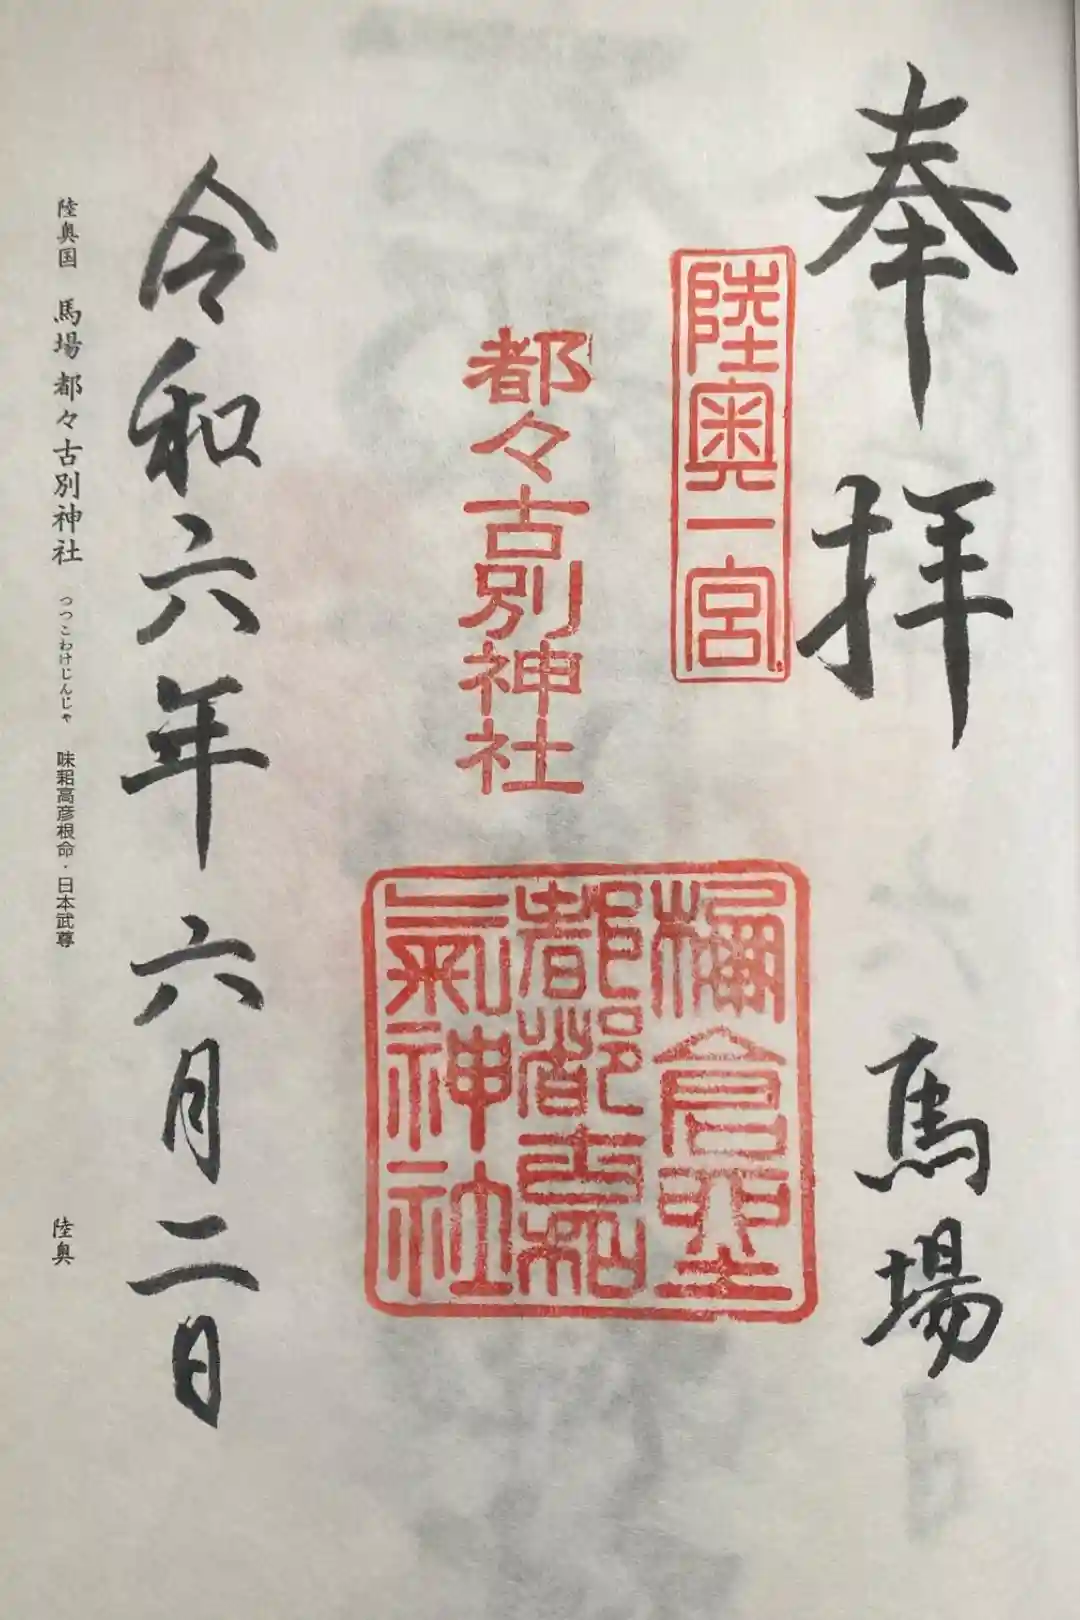 奉拝 馬場
陸奥一宮
都々古別神社
檷倉坐
都都古和
氣神社
令和六年六月二日
陸奥国 馬場 都々古別神社 つつこわけじんじゃ 味耜高彦根命・日本武尊 陸奥